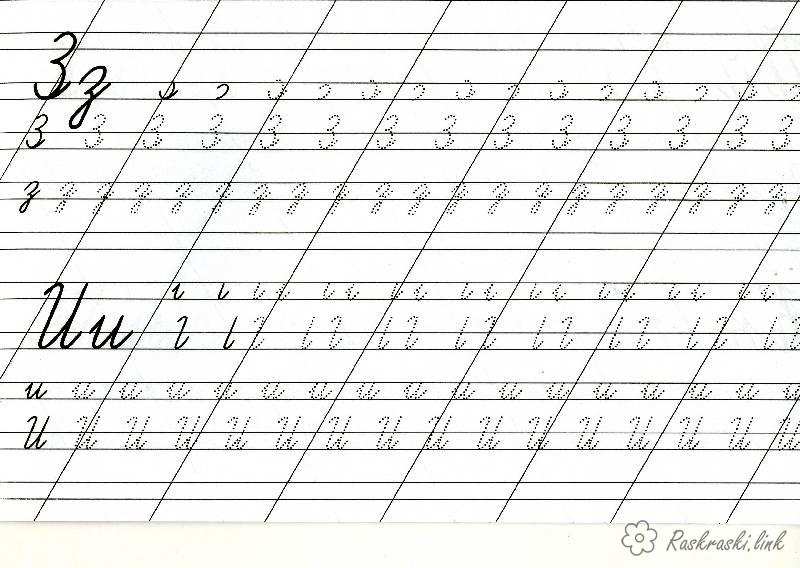 Зз
З З З З З З З З З З З З З З
з з з з з з з з з з з з з з з з з з з з
Ии
и и и и и и и и и и и и и и и и и
И И И И И И И И И И И И И И И И
Raskraski.link